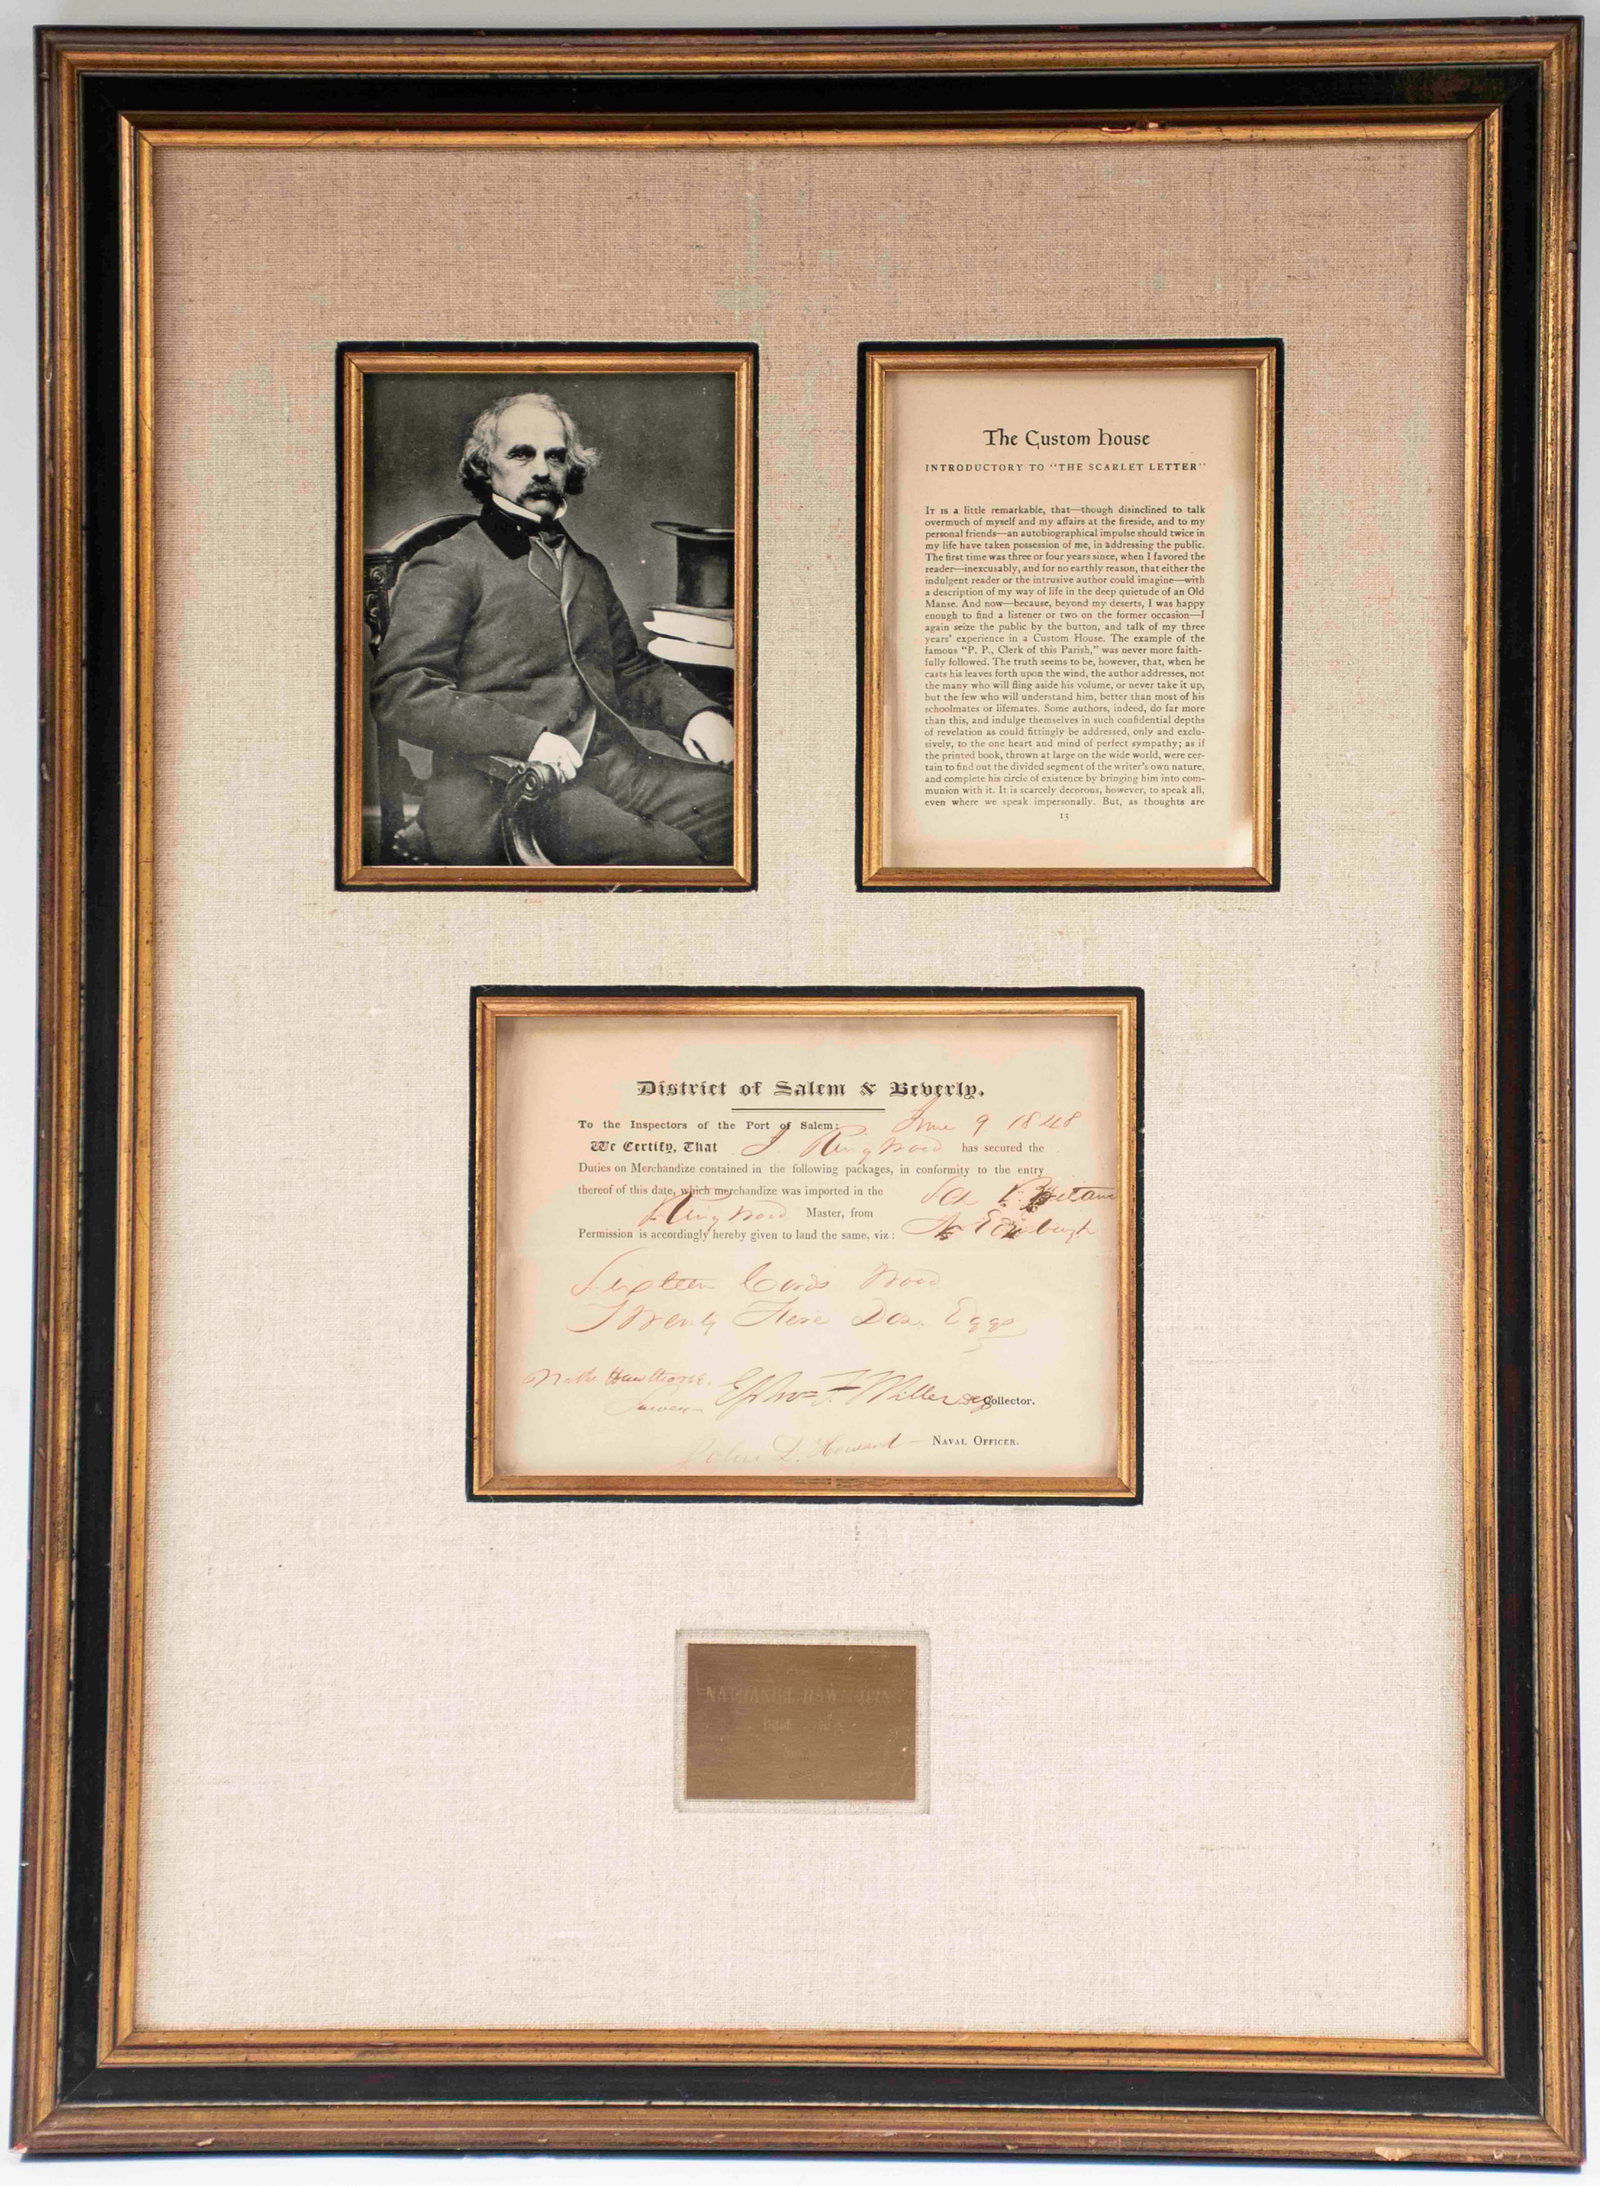 The Custom House
INTRODUCTORY TO "THE SCARLET LETTER"
IT IS a little remarkable, that—though disinclined to talk
overmuch of myself and my affairs at the fireside, and to my
personal friends—an autobiographical impulse should twice in
my life have taken possession of me, in addressing the public.
The first time was three or four years since, when I favored the
reader—inexcusably, and for no earthly reason, that either the
indulgent reader or the intrusive author could imagine—with
a description of my way of life in the deep quietude of an Old
Manse. And now—because, beyond my deserts, I was happy
enough to find a listener or two on the former occasion—I
again seize the public by the button, and talk of my three
years' experience in a Custom House. The example of the
famous "P. P., Clerk of this Parish," was never more faith-
fully followed. The truth seems to be, however, that, when he
casts his leaves forth upon the wind, the author addresses, not
the many who will fling aside his volume, or never take it up,
but the few who will understand him, better than most of his
schoolmates or lifemates. Some authors, indeed, do far more
than this, and indulge themselves in such confidential depths
of revelation as could fittingly be addressed, only and exclu-
sively, to the one heart and mind of perfect sympathy; as if
the printed book, thrown at large on the wide world, were cer-
tain to find out the divided segment of the writer's own nature,
and complete his circle of existence by bringing him into com-
munion with it. It is scarcely decorous, however, to speak all,
even where we speak impersonally. But, as thoughts are
13
District of Salem & Beverly.
To the Inspectors of the Port of Salem: June 9 1848
We Certify, That J Ringwood has secured the
Duties on Merchandize contained in the following packages, in conformity to the entry
thereof of this date, which merchandize was imported in the
Ringwood Master, from
Permission is accordingly hereby given to land the same, viz:
Sixteen Cords Wood
Twenty Five Doz. Eggs
Nath Hawthorne. Ephm F. Miller Collector.
Surveyor
John D. Howard NAVAL OFFICER.
NATHANIEL HAWTHORNE